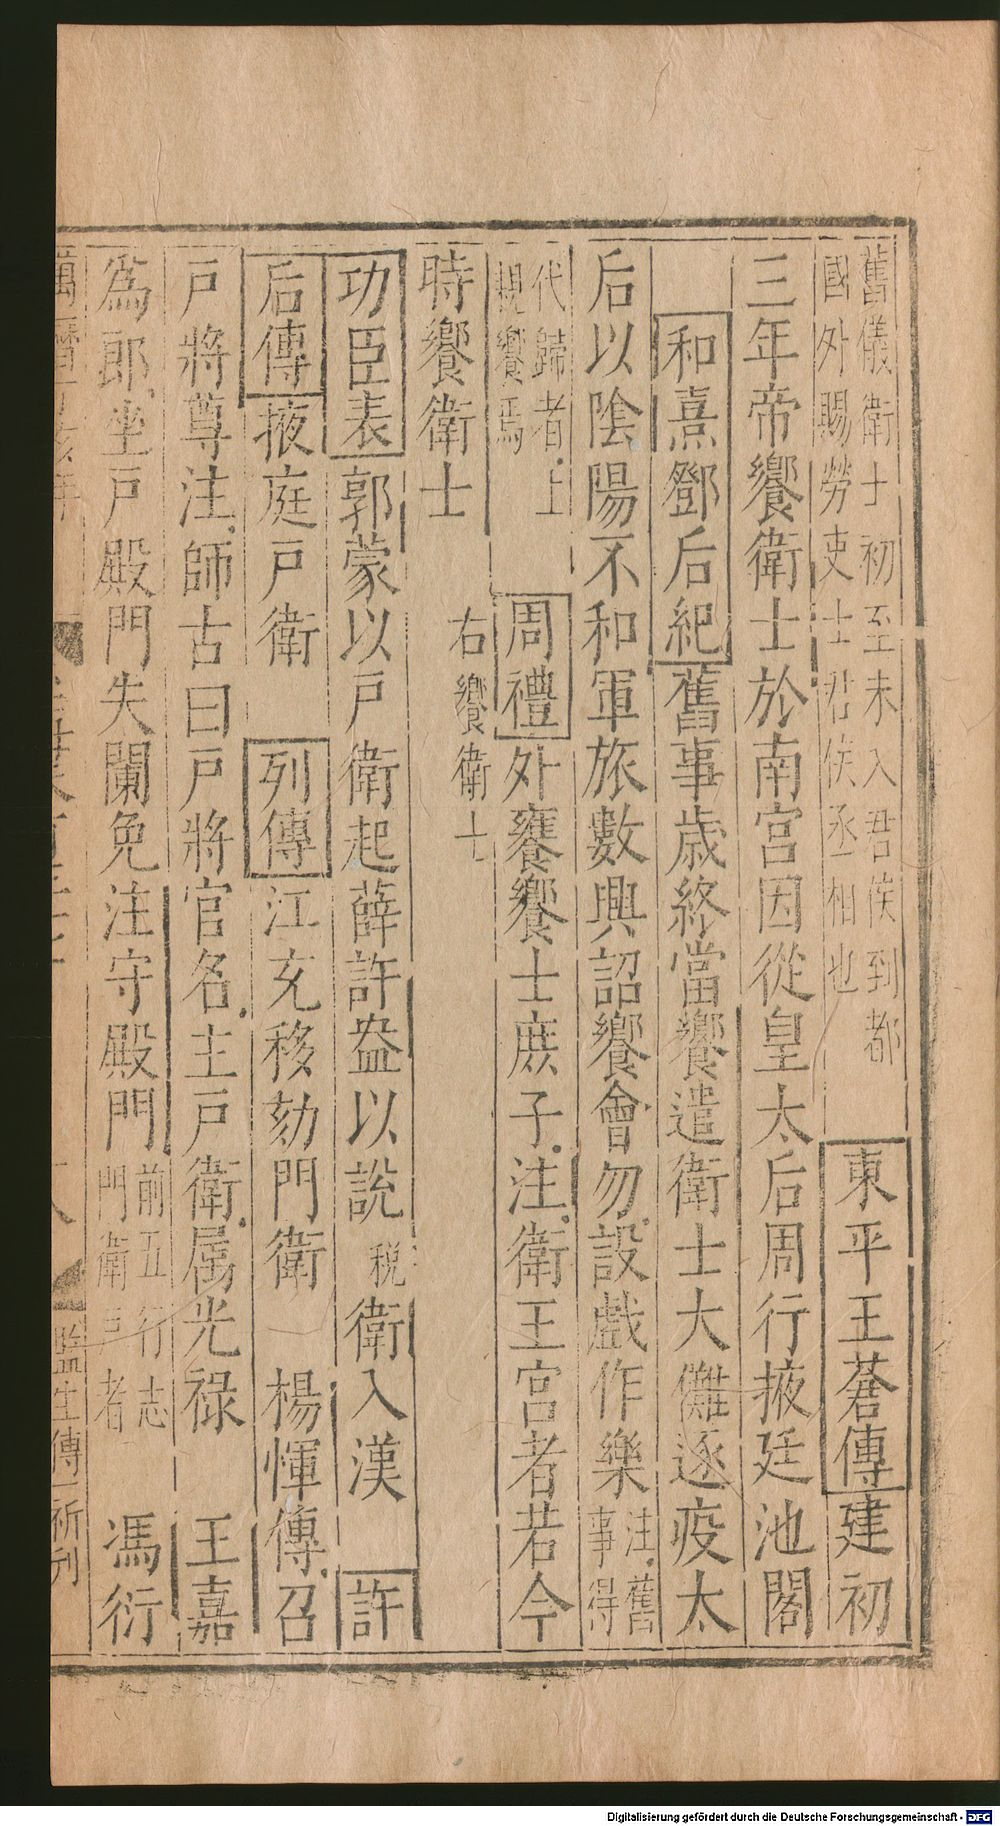 舊儀衛士初至未入君侯到都
國外賜勞吏士君侯丞相也
東平王蒼傳建初
三年帝饗衛士於南宮因從皇太后周行掖廷池閣
和熹鄧后紀舊事歲終當饗遣衛士大儺逐疫太
后以陰陽不和軍旅數興詔饗會勿設戲作樂
注舊
事得
代歸者上
親饗焉
周禮外饔饗士庶子注衛王宮者若今
時饗衛士
右饗衛士
功臣表郭蒙以戶衛起薛許盎以說
稅
衛入漢
許
后傳掖庭戶衛
列傳江充移劾門衛
楊惲傳召
戶將尊注師古曰戶將官名主戶衛屬光祿
王嘉
為郎坐戶殿門失闌免注守殿門
前五行志
門衛戶者
馮衍
監生傅一祈刊
Digitalisierung gefördert durch die Deutsche Forschungsgemeinschaft - DFG